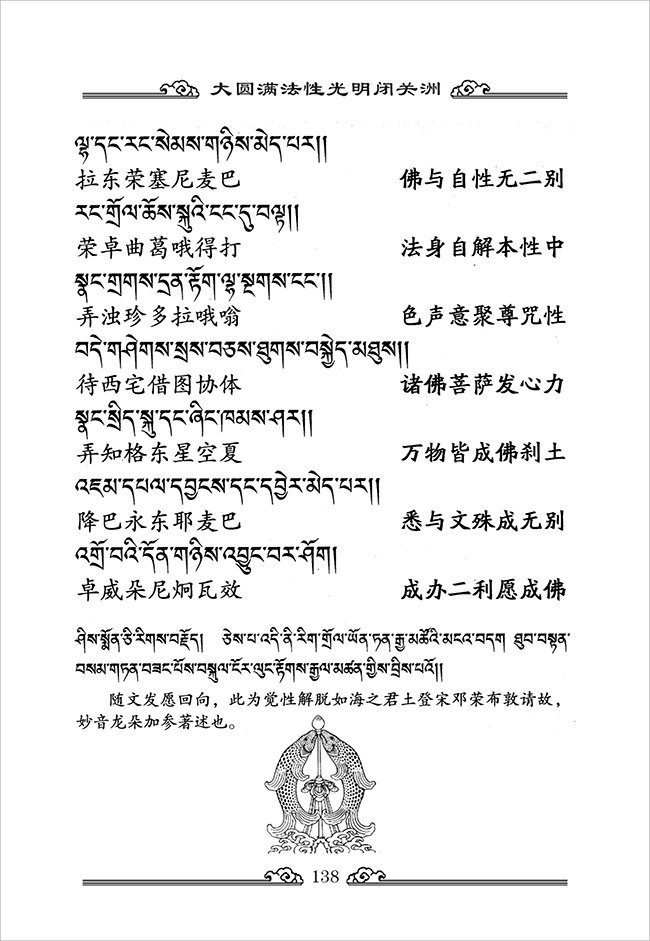 大圆满法性光明闭关洲
ལྷ་དང་རང་སེམས་གཉིས་མེད་པར།།
拉东荣塞尼麦巴 佛与自性无二别
རང་གྲོལ་ཆོས་སྐུའི་ངང་དུ་བལྟ།།
荣卓曲葛哦得打 法身自解本性中
སྣང་གྲགས་དྲན་རྟོག་ལྷ་སྔགས་ངང་།།
弄浊珍多拉哦嗡 色声意聚尊咒性
བདེ་གཤེགས་སྲས་བཅས་ཐུགས་བསྐྱེད་མཐུས།།
待西宅借图协体 诸佛菩萨发心力
སྣང་སྲིད་སྐུ་དང་ཞིང་ཁམས་ཤར།།
弄知格东星空夏 万物皆成佛刹土
འཇམ་དཔལ་དབྱངས་དང་དབྱེར་མེད་པར།།
降巴永东耶麦巴 悉与文殊成无别
འགྲོ་བའི་དོན་གཉིས་འབྱུང་བར་ཤོག།
卓威朵尼炯瓦效 成办二利愿成佛
ཤིས་སྨོན་ཅི་རིགས་བརྗོད། ཅེས་པ་འདི་ནི་རིག་གྲོལ་ཡོན་ཏན་རྒྱ་མཚོའི་མངའ་བདག ཐུབ་བསྟན་
བསམ་གཏན་བཟང་པོས་བསྐུལ་ངོར་ལུང་རྟོགས་རྒྱལ་མཚན་གྱིས་བྲིས་པའོ།།
随文发愿回向，此为觉性解脱如海之君土登宋邓荣布敦请故，
妙音龙朵加参著述也。
138